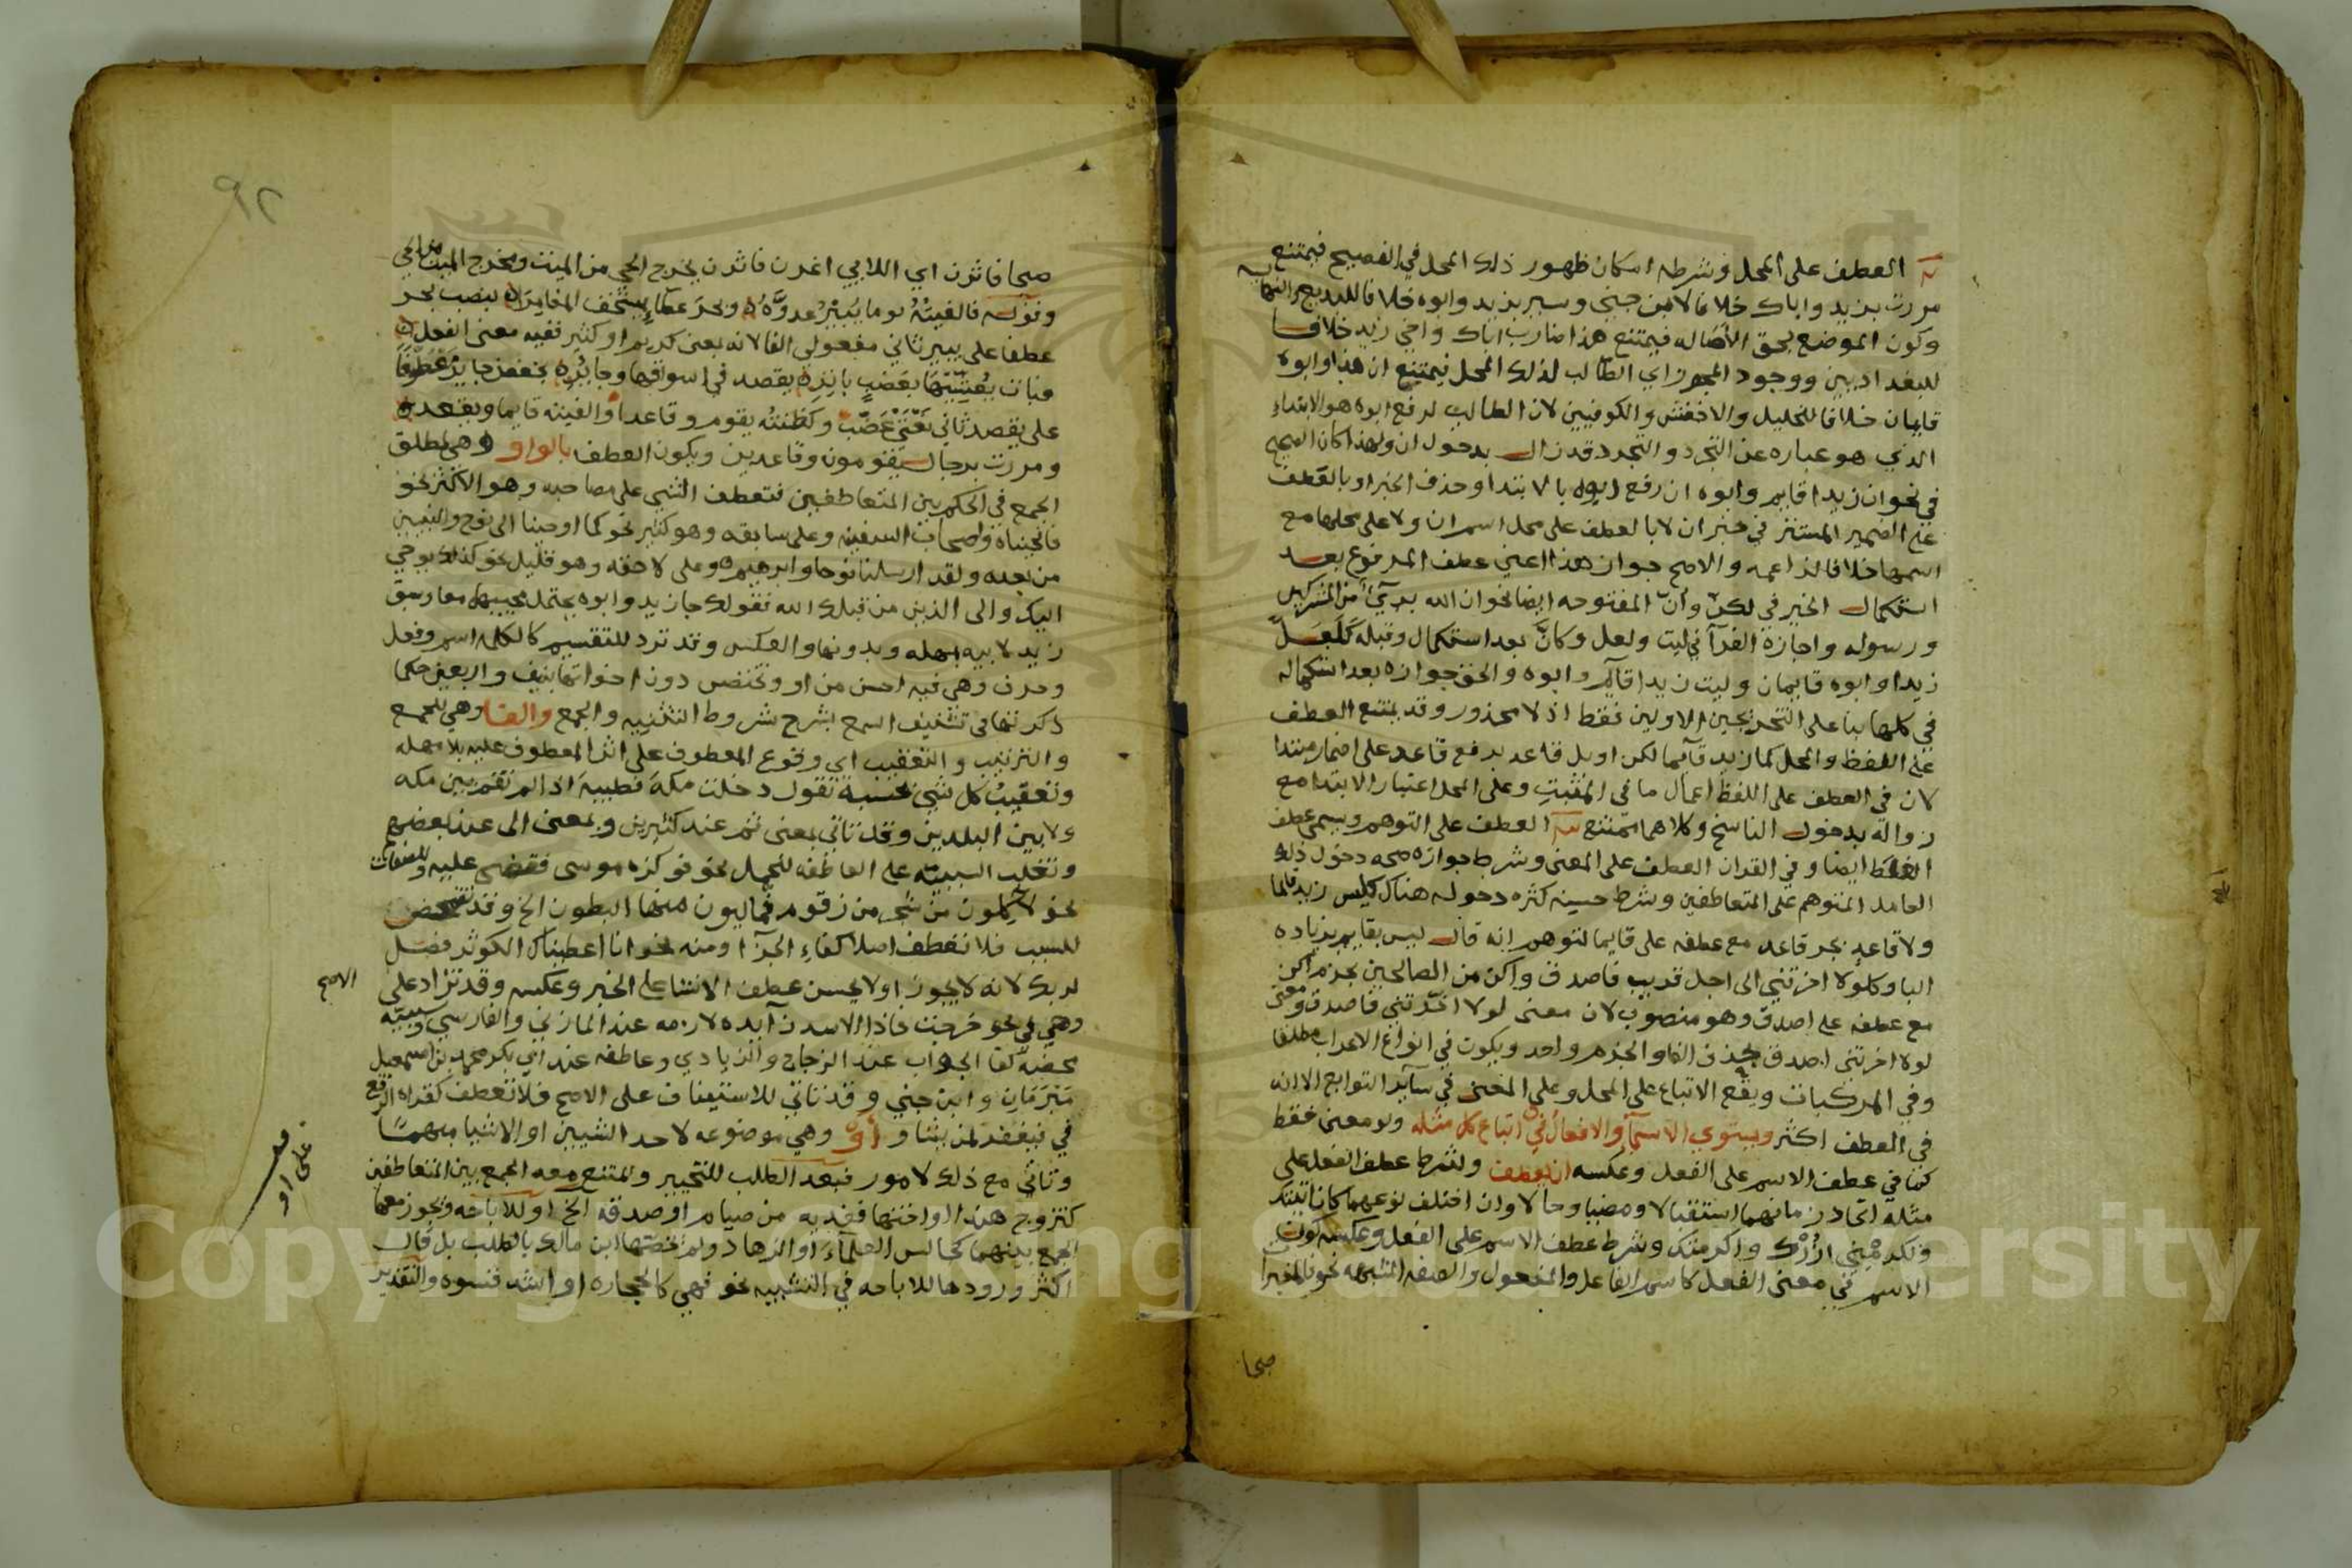 العطف على المحل وشرطه امكان ظهور ذلك المحل في الفصيح فيمتنع
مررت بزيد واباك خلافا لابن جني وسير بزيد وابوه خلافا للبديع
وكون الموضع بحق الاصاله فيمتنع هذا ضارب اباك واخي زيد خلافا
للبغداديين ووجود المحرز اي الطالب لذلك المحل فيمتنع ان هذا وابوه
قايمان خلافا للخليل والاخفش والكوفيين لان الطالب لرفع ابوه هو الابتداء
الذي هو عباره عن التجرد والتجرد قد زال بدخول ان ولهذا كان الصحيح
في نحو ان زيدا قايم وابوه ان رفع ابوه بالابتدا وحذف الخبر او بالعطف
على الضمير المستتر في خبر ان لا بالعطف على محل اسم ان ولا على محلها مع
اسمها خلافا لزاعمه والاصح جواز هذا اعني عطف المرفوع بعد
استكمال الخبر في لكن وأن المفتوحه ايضا نحو ان الله بريٓء من المشركين
ورسوله واجازه الفرآ في ليت ولعل وكأنّ بعد استكمال وقبله كلعل
زيدا وابوه قايمان وليت زيدا قايم وابوه والحق جوازه بعد استكماله
في كلها بنا على التخريجين الاولين فقط اذ لا محذور وقد يمتنع العطف
على اللفظ والمحل كما زيد قآيما لكن او بل قاعد برفع قاعد على اضمار مبتدا
لان في العطف على اللفظ اعمال ما في المثبت وعلى المحل اعتبار الابتدا مع
زواله بدخول الناسخ وكلاهما ممتنع العطف على التوهم ويسمى عطف
الغلط ايضا وفي القران العطف على المعنى وشرط جوازه صحه دخول ذلك
العامل المتوهم على المتعاطفين وشرط حسنه كثره دخوله هناك كليس زيد قايما
ولا قاعد بجر قاعد مع عطفه على قايما لتوهم انه قال ليس بقايم بزياده
البا وكلولا اخرتني الى اجل قريب فاصدق واكن من الصالحين بجزم اكن
مع عطفه على اصدق وهو منصوب لان معنى لولا اخّرتني فاصدق ومعنى
لولا اخرتني اصدق بحذف الفا والجزم واحد ويكون في انواع الاعراب مطلقا
وفي المركبات ويقع الاتباع على المحل وعلى المعنى في سآير التوابع الا انه
في العطف اكثر ويستوي الاسمآ والافعال في اتباع كل مثله ولو معنى فقط
كما في عطف الاسم على الفعل وعكسه ان يعطف ولشرط عطف الفعل على
مثله اتحاد زمانهما استقبالا ومضيا وحالا وان اختلف نوعهما كان تاتني
واكرمتك وشرط عطف الاسم على الفعل وعكسه كون
الاسم في معنى الفعل كاسم الفاعل والمفعول والصفه المشبهه نحو فالمغيرات
صبحا
صبحا فاثرن اي اللايي اغرن فاثرن يخرج الحي من الميت ومخرج الميت من الحي
وقوله فالفيته يوما يُبير عدوَّه وبحر عطاءٍ يستخف المعابرا بنصب بحر
عطفا على يبير ثاني مفعولي الفا لانه بمعنى كريم او كثير ففيه معنى الفعل
وبات يعشيها بعضب باتره يقصد في اسوقها وجايره بخفض جاير عطفا
على يقصد ثاني نعتي عضب وكظننته يقوم وقاعدا والفيته قايما ويقعد
ومررت برجال يقومون وقاعدين ويكون العطف بالواو وهي لمطلق
الجمع في الحكم بين المتعاطفين فتعطف الشي على مصاحبه وهو الاكثر نحو
فانجيناه واصحاب السفينه وعلى سابقه وهو كثير نحو كما اوحينا الى نوح والنبيين
من بعده ولقد ارسلنا نوحا وابرهيم وعلى لاحقه وهو قليل نحو كذلك يوحي
اليك والى الذين من قبلك الله فقولك جا زيد وابوه يحتمل مجييهما معا وسبق
زيد لابيه بمهله وبدونها والعكس وقد ترد للتقسيم كالكلمه اسم وفعل
وحرف وهي فيه احسن من او وتختص دون اخواتها بنيف واربعين حكما
ذكرتها في تشنيف السمع بشرح شروط التثنيه والجمع والفا وهي للجمع
والترتيب والتعقيب اي وقوع المعطوف على اثر المعطوف عليه بلا مهله
وتعقيب كل شي بحسبه تقول دخلت مكة فطيبة اذا لم تقم بين مكه
ولا بين البلدين وقد تاتي بمعنى ثم عند كثيرين وبمعنى الى عند بعضهم
وتغلب السببيه على العاطفه للجمل نحو فوكزه موسى فقضى عليه وللصفات
نحو لاكلون من شجر من زقوم فماليون منها البطون الخ وقد تتمحض
للسبب فلا تعطف اصلا كفاء الجزا ومنه نحو انا اعطيناك الكوثر فصل
لربك لانه لا يجوز او لا يحسن عطف الانشا على الخبر وعكسه وقد تزاد على الاصح
وهي في نحو خرجت فاذا الاسد زآيده لازمه عند المازني والفارسي وسببيه
محضه كفا الجواب عند الزجاج والزيادي وعاطفه عند ابي بكر محمد بن اسمعيل
مبرمان وابن جني وقد تاتي للاستيناف على الاصح فلا تعطف كقراه الرفع
في فيغفر لمن يشا و أو وهي موضوعه لاحد الشيين او الاشيا مبهما
وتاتي مع ذلك لامور فبعد الطلب للتخيير ويمتنع معه الجمع بين المتعاطفين
كتزوج هندا او اختها ففديه من صيام او صدقه الخ او للاباحه ويجوز معها
الجمع بينهما كجالس العلمآء او الزهاد ولم يخصها ابن مالك بالطلب بل قال
اكثر ورودها للاباحه في التشبيه نحو فهي كالحجاره او اشد قسوه والتقدير
٩٢
على او
Copyright © King Saud University